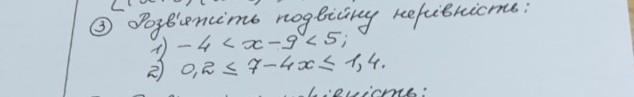 ③ Розв'яжіть подвійну нерівність:
1) -4 < x - 9 < 5;
2) 0,2 ≤ 7 - 4x ≤ 1,4.